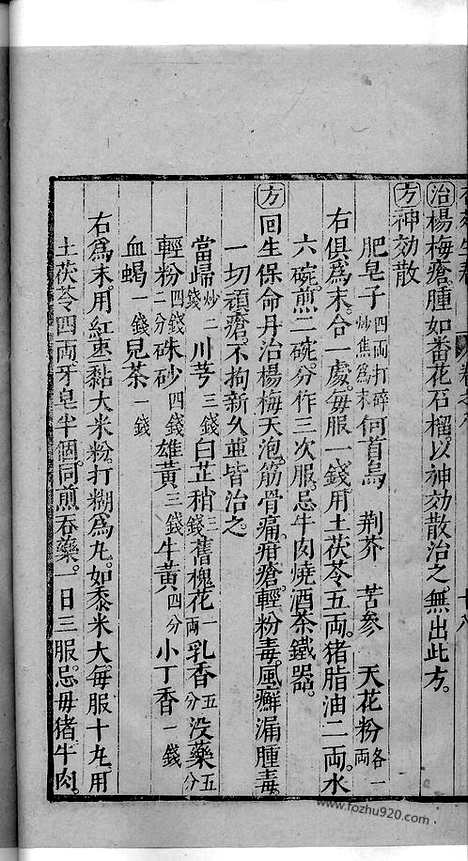 治楊梅瘡腫如番花石榴以神効散治之無出此方。
方神効散
肥皂子四両打碎炒焦為末何首烏 荆芥 苦參 天花粉各一両
右俱為末。合一處每服一錢用土茯苓五両。猪脂油二両。水
六碗。煎二碗。分作三次服。忌牛肉燒酒茶鐵器。
方回生保命丹治楊梅天泡。筋骨痛。疳瘡。輕粉毒。風癬漏腫毒。
一切頑瘡。不拘新久並皆治之。
當歸炒二錢川芎三錢白芷稍三錢舊槐花一錢乳香五分没藥五分
輕粉四錢二分硃砂四錢雄黃三錢牛黃四分小丁香一錢
血蝎一錢兒茶一錢
右為末。用紅棗黏大米粉打糊為丸。如黍米大每服十丸。用
土茯苓四両牙皂半個。同煎吞藥。一日三服。忌母猪牛肉。
www.fozhu920.com